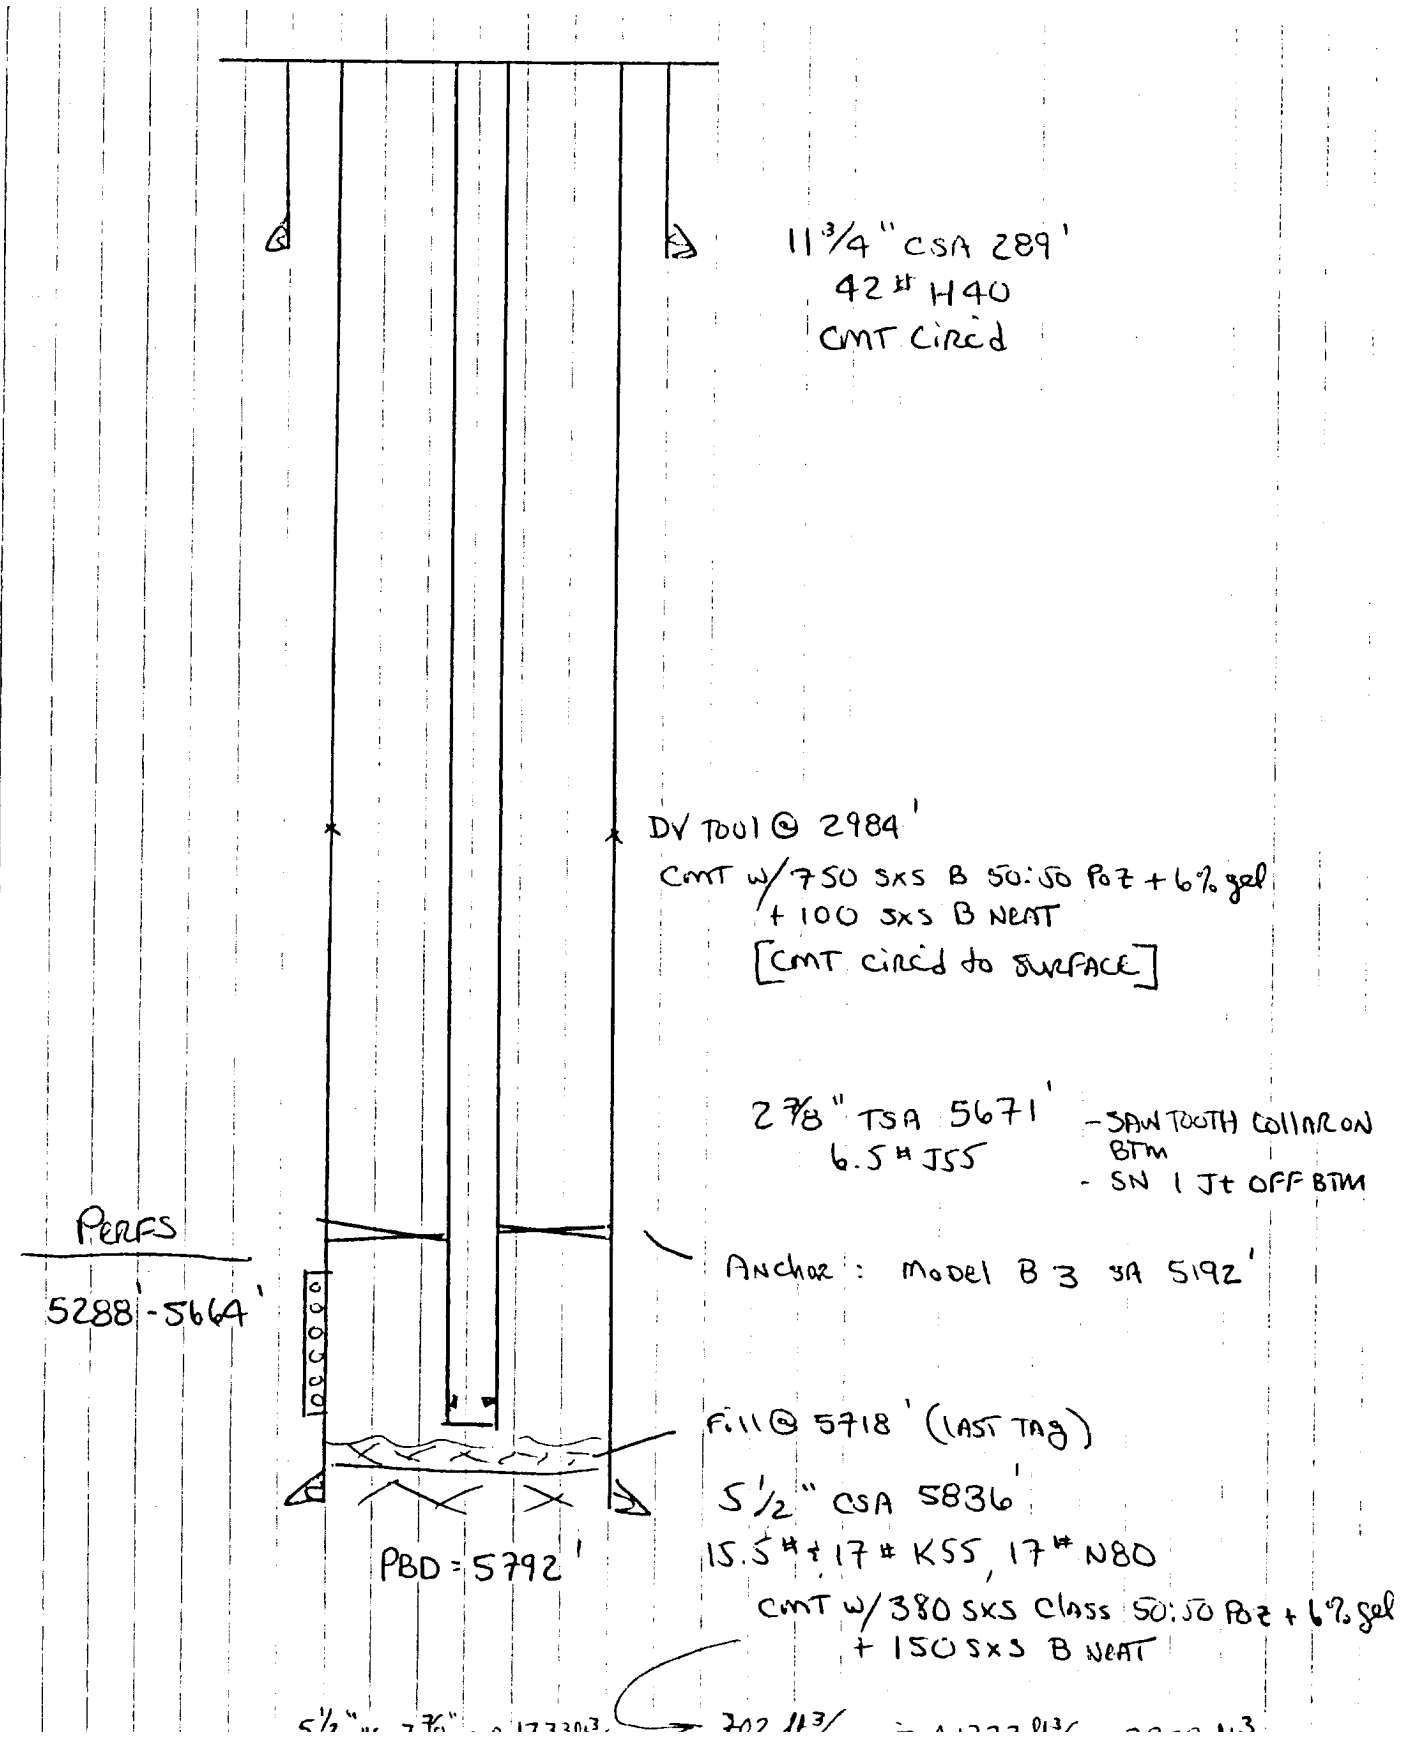 11 3/4" CSA 289'
42# H40
CMT CIRC'd
DV TOOl @ 2984'
CMT w/ 750 SXS B 50:50 POZ + 6% gel
+ 100 SXS B NEAT
[CMT CIRC'd to SURFACE]
2 7/8" TSA 5671'
6.5# J55
- SAWTOOTH COLLAR ON
BTM
- SN 1 Jt OFF BTM
PERFS
5288'-5664'
ANchoR: MODEl B 3 SA 5192'
Fill @ 5718' (LAST TAg)
5 1/2" CSA 5836'
15.5# & 17# K55, 17# N80
PBD = 5792'
CMT w/ 380 SXS ClASS 50:50 POZ + 6% gel
+ 150 SXS B NEAT
5 1/2"